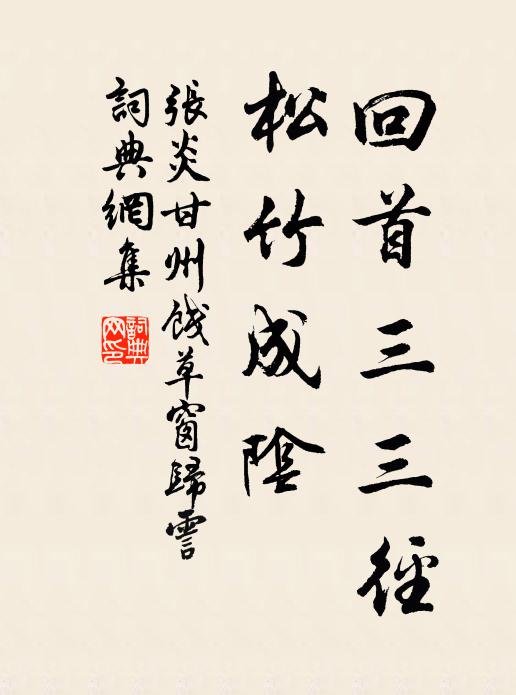 回首三三徑
松竹成陰
張炎甘州餞草窗歸霅
詞典網集
詞典網印